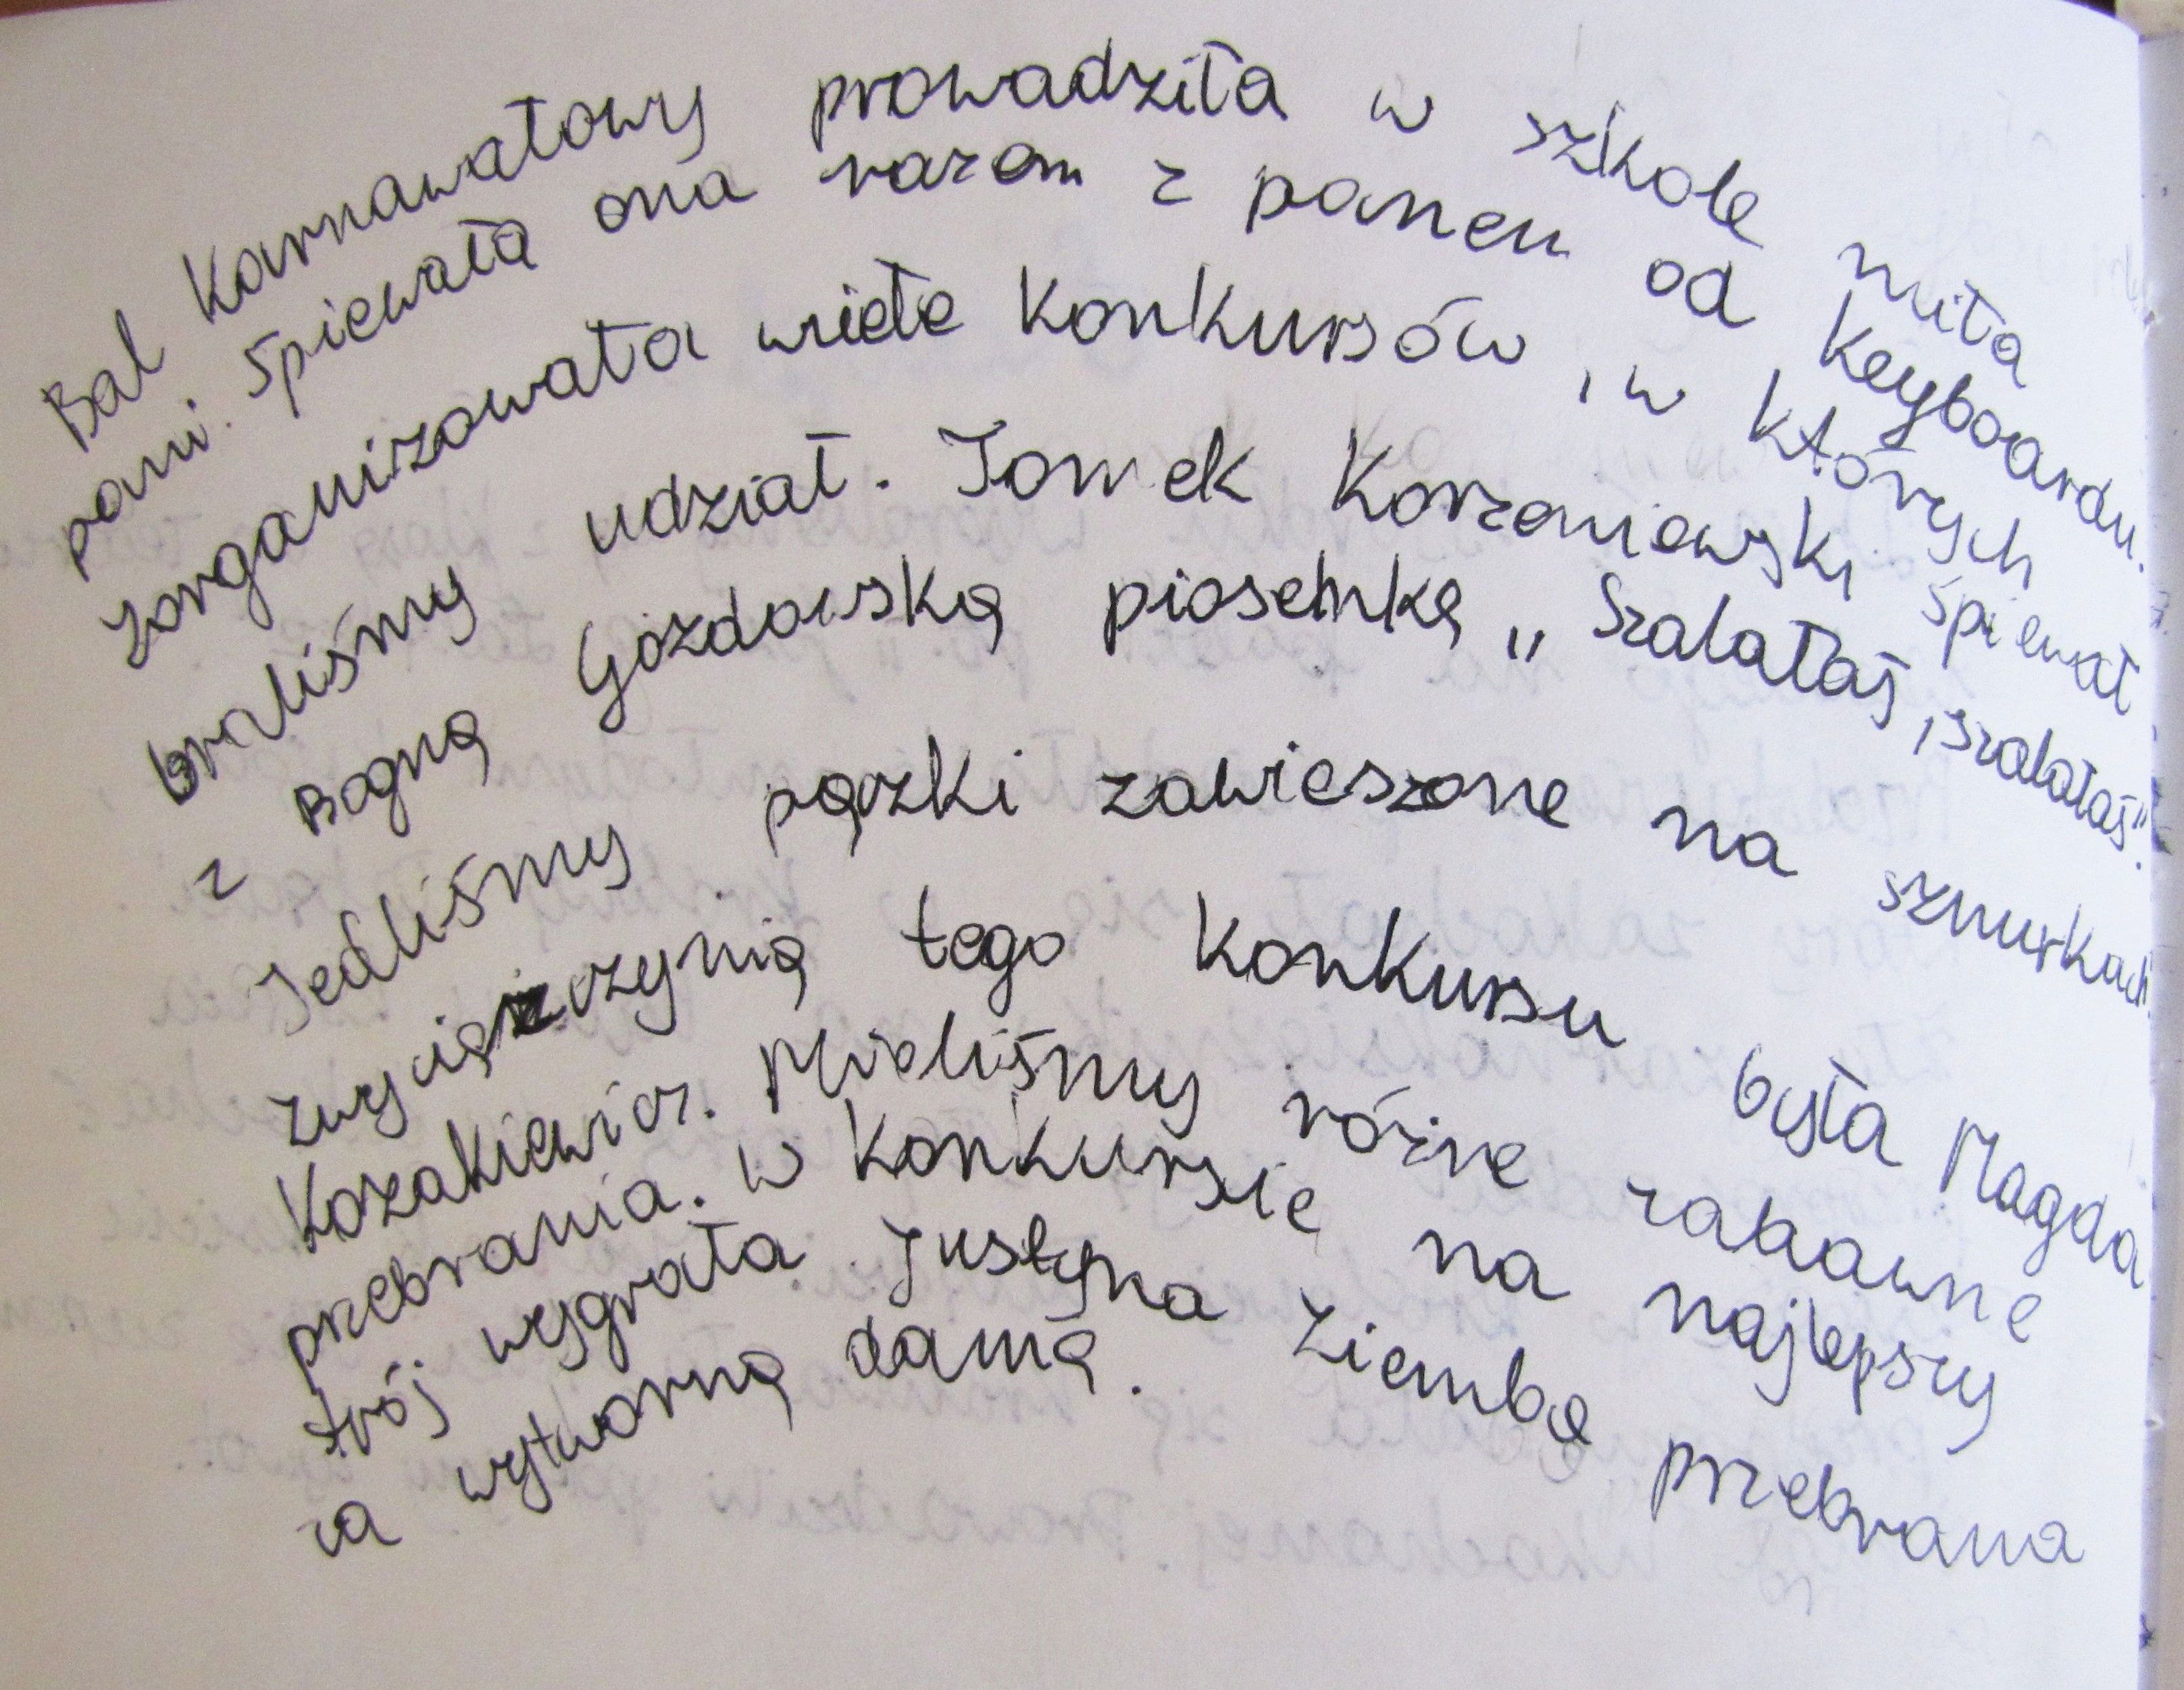 Bal Karnawałowy prowadziła w szkole miła
pani. Śpiewała ona razem z panem od Keyboardu.
Zorganizowała wiele konkursów, w których
braliśmy udział. Tomek Korzeniowski śpiewał
z Bogną Gozdowską piosenkę „Szalałaś, szalałaś".
Jedliśmy pączki zawieszone na sznurkach.
Zwyciężczynią tego konkursu była Magda
Kozakiewicz. Mieliśmy różne zabawne
przebrania. W konkursie na najlepszy
strój wygrała Justyna Ziemba przebrana
za wytworną damę.